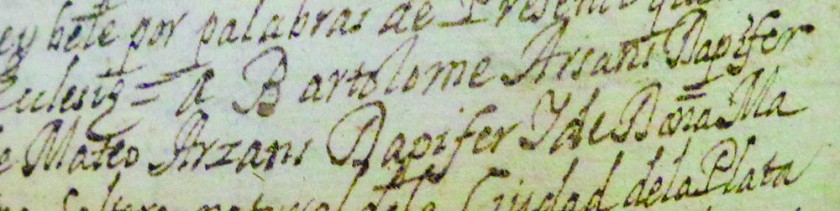 por palabras de Presente que
Ecclesia = a Bartolome Arsans Dapifer
de Mateo Arzans Dapifer Y de Doña Ma
soltero natural de la Ciudad de la Plata